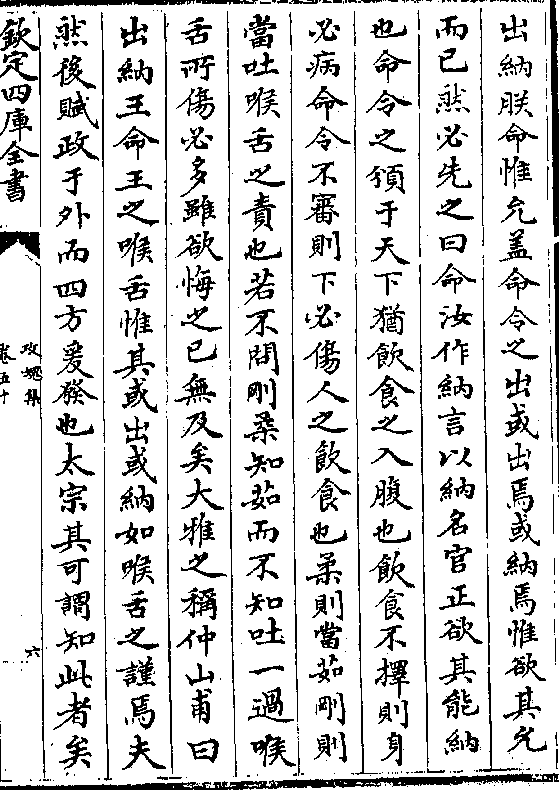 出納朕命惟允蓋命令之出或出焉或納焉惟欲其允
而已然必先之曰命汝作納言以納名官正欲其能納
也命令之頒于天下猶飲食之入腹也飲食不擇則身
必病命令不審則下必傷人之飲食也柔則當茹剛則
當吐喉舌之責也若不問剛柔知茹而不知吐一過喉
舌所傷必多雖欲悔之已無及矣大雅之稱仲山甫曰
出納王命王之喉舌惟其或出或納如喉舌之謹焉夫
然後賦政于外而四方爰發也太宗其可謂知此者矣
欽定四庫全書
攻媿集
卷五十
六